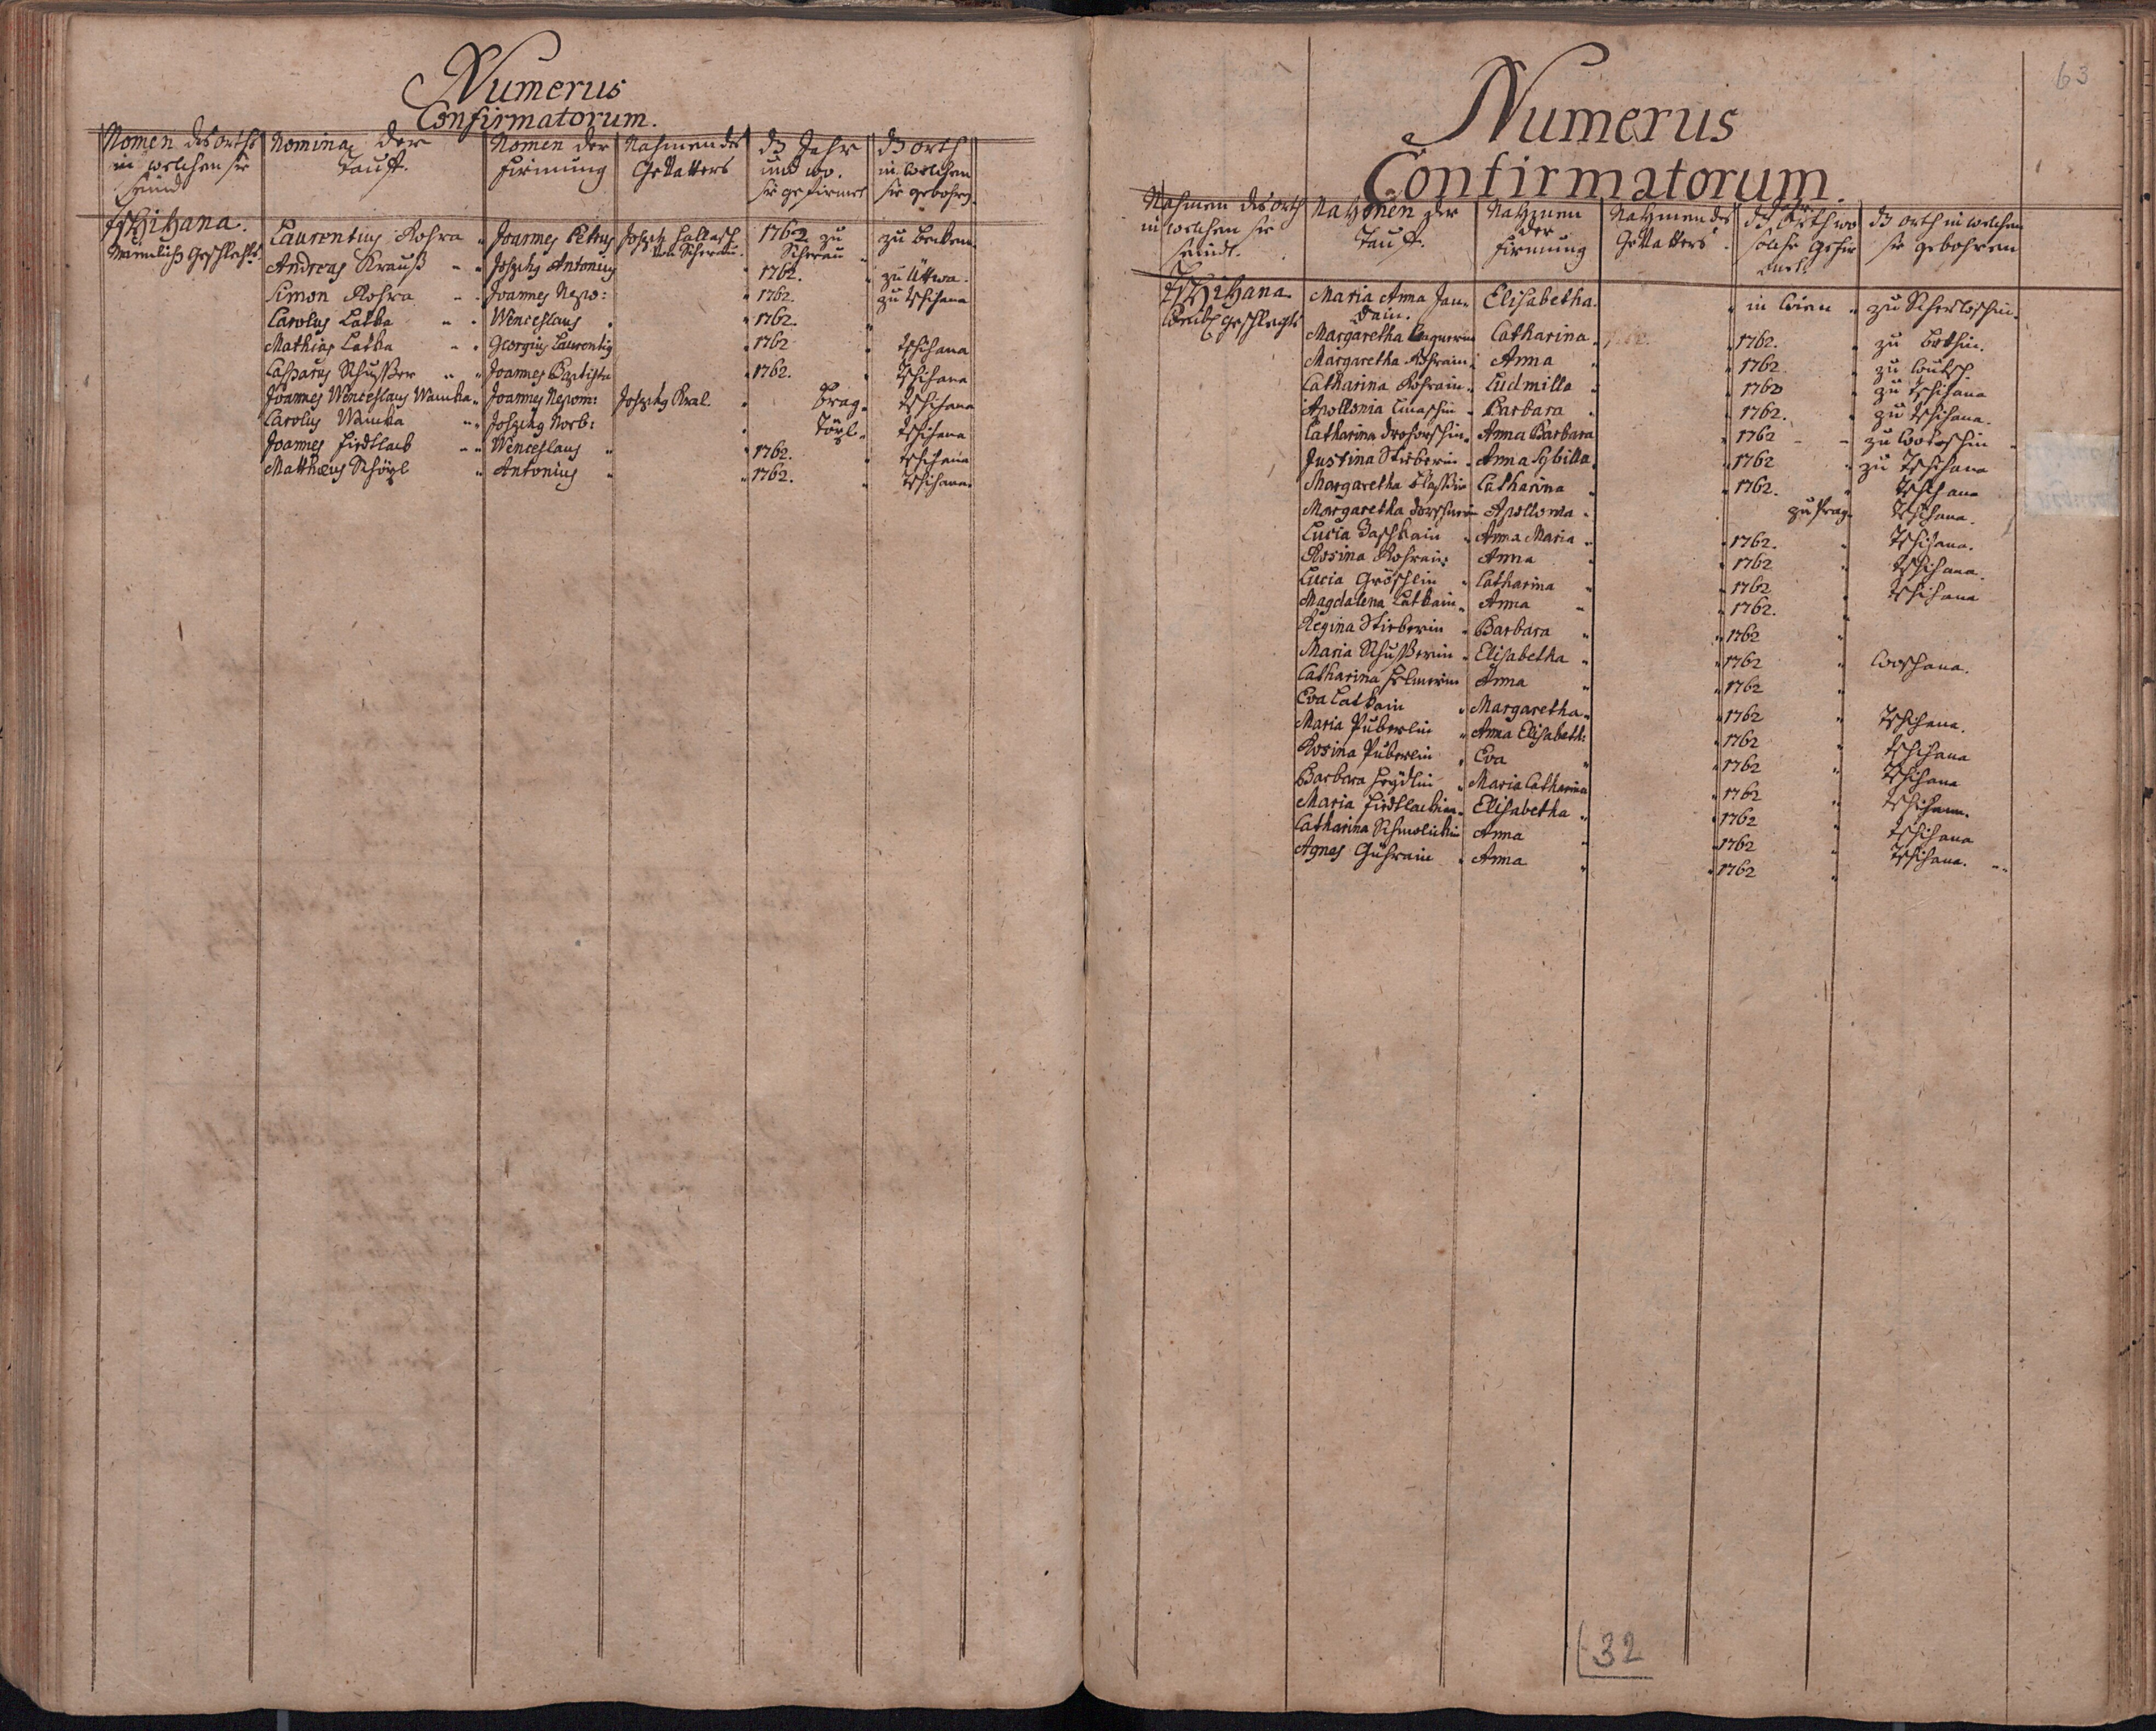 Numerus
Confirmatorum.
Nomen des orths in welchen sie seind
Nomina der Tauff.
Nomen der Firmung
Nahmen des Gevatters
dz Jahr und wo. sie gefirmet
dz orth in welchen sie gebohrn.
Tschihana. Laurentius Rohra Joannes Petrus Joseph von Scherau. 1762 zu Scherau zu
Männlichs Geschlechts. Andreas Krauß Josephus Antonius 1762. zu Uttwa.
Simon Rohra Joannes Nepo: 1762. zu Tschihana
Carolus Latka Wenceslaus 1762.
Mathias Latka Georgius Laurentius 1762 Tschihana
Casparus Schusser Joannes Baptista 1762. Tschihana
Joannes Wenceslaus Wanika Joannes Nepom: Josephus Kral. Prag. Tschihana
Carolus Wanika Josephus Norb: Töpl. Tschihana
Joannes Wenceslaus 1762. Tschihana
Matthæus Schöpl Antonius 1762. Tschihana.
63
Numerus
Confirmatorum.
Nahmen des orth in welchen sie seindt.
Nahmen der Tauff.
Nahmen der Firmung
Nahmen des Gevatters
dz orth in welchen sie gebohren
Tschihana. Maria Anna Jandain. Elisabetha. in Wien zu
Weibl. Geschlechts Margaretha Catharina. 1762. zu
Margaretha Rohrain. Anna 1762. zu
Catharina Rohrain. Ludmilla 1762 zu Tschihana
Apollonia Barbara 1762. zu Tschihana.
Catharina Anna Barbara 1762 zu
Justina Stieberin Anna Sybilla. 1762 zu Tschihana
Margaretha Catharina 1762. Tschihana
Margaretha Apollonia zu Prag. Tschihana.
Lucia Anna Maria 1762. Tschihana.
Rosina Rohrain Anna 1762 Tschihana.
Lucia Gröschlin Catharina 1762 Tschihana
Magdalena Latkain Anna 1762.
Regina Stieberin Barbara 1762
Maria Schusserin Elisabetha 1762 Woschana.
Catharina Anna 1762
Eva Latkain Margaretha 1762 Tschihana.
Maria Puberlin Anna Elisabeth: 1762 Tschihana
Rosina Puberlin Eva 1762 Tschihana
Barbara Heydlin Maria Catharina 1762 Tschihana.
Maria Elisabetha 1762 Tschihana
Catharina Anna 1762 Tschihana.
Agnes Anna 1762
32